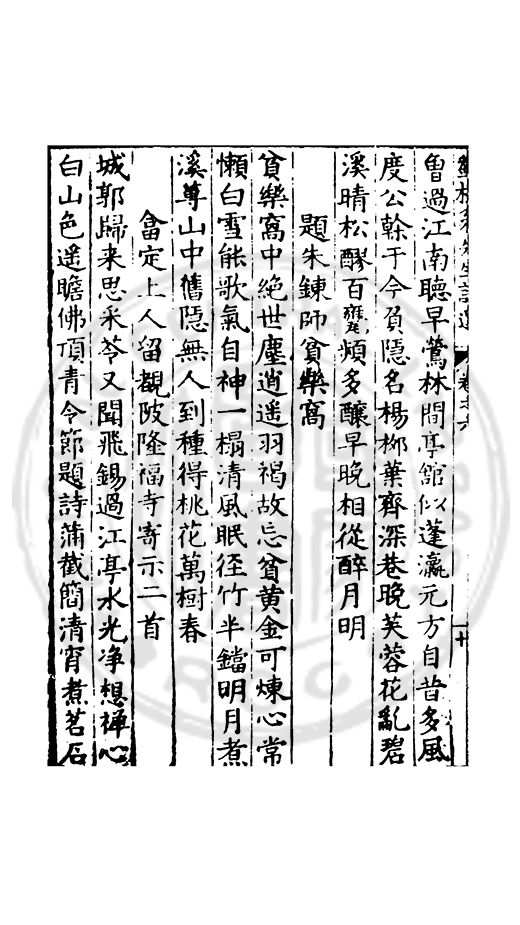 卷之六 十
曾過江南聽早鶯林間亭舘似蓬瀛元方自昔多風
度公榦于今負隱名楊栁葉齊深巷晚芙蓉花亂碧
溪晴松醪百甕煩多釀早晚相從醉月明
題朱鍊師貧樂窩
貧樂窩中絶世塵逍遥羽褐故忘貧黄金可煉心常
懶白雪能歌氣自神一榻清風眠徑竹半鐺明月煮
溪蓴山中舊隱無人到種得桃花萬樹春
畣定上人留觀陂隆福寺寄示二首
城郭歸来思采苓又聞飛錫過江亭水光净想禅心
白山色遥瞻佛頂青令節題詩蒲截簡清宵煮茗石